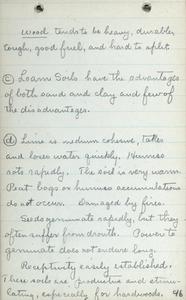 wood tends to be heavy, durable,
tough, good fuel, and hard to split
(c) Loam Soils have the advantages
of both sand and clay and few of
the disadvantages.
(d) Lime is medium cohesive, takes
and loses water quickly. Humus
rots rapidly. The soil is very warm
Peat bogs or humus accumulations
do not occur. Damaged by fires.
Seeds germinate rapidly, but they
often suffer from drouth. Power to
germinate does not endure long.
Receptivity easily established.
These soils are productive and stimu-
lating, especially for hardwoods.